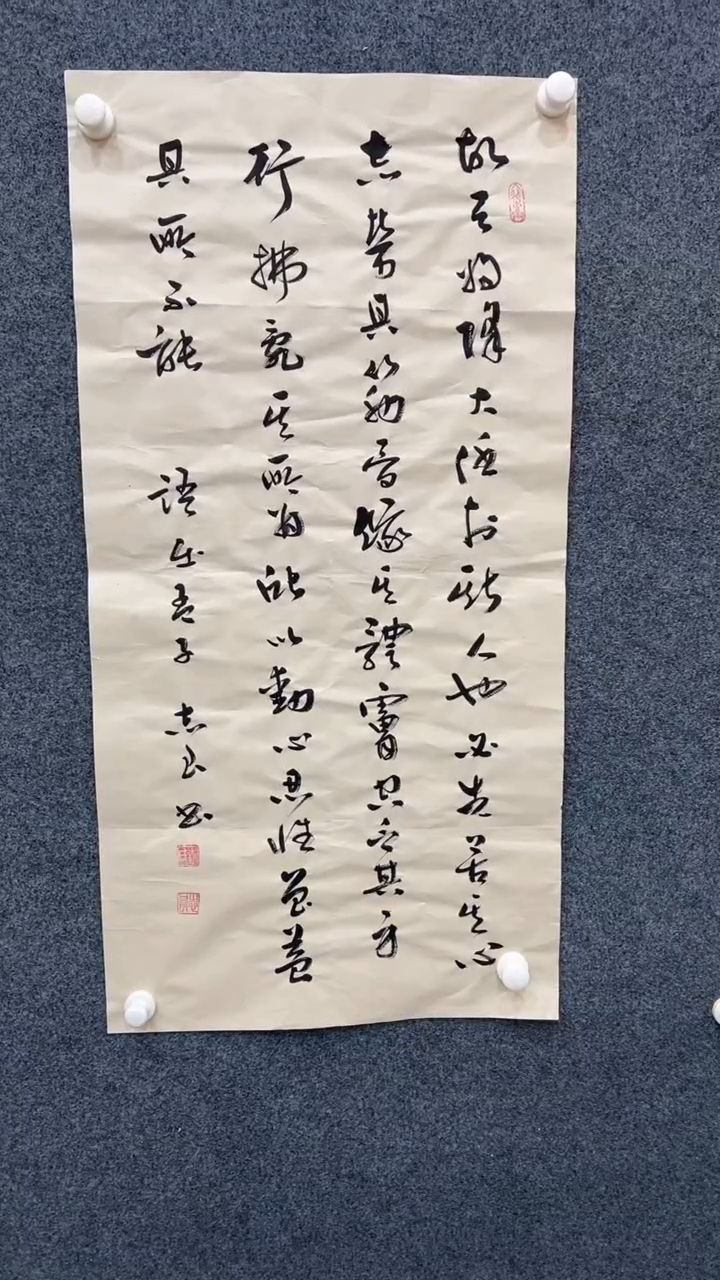 故天將降大任於斯人也必先苦其心
志勞其筋骨餓其體膚空乏其身
行拂亂其所為所以動心忍性曾益
其所不能 語出孟子 志良書